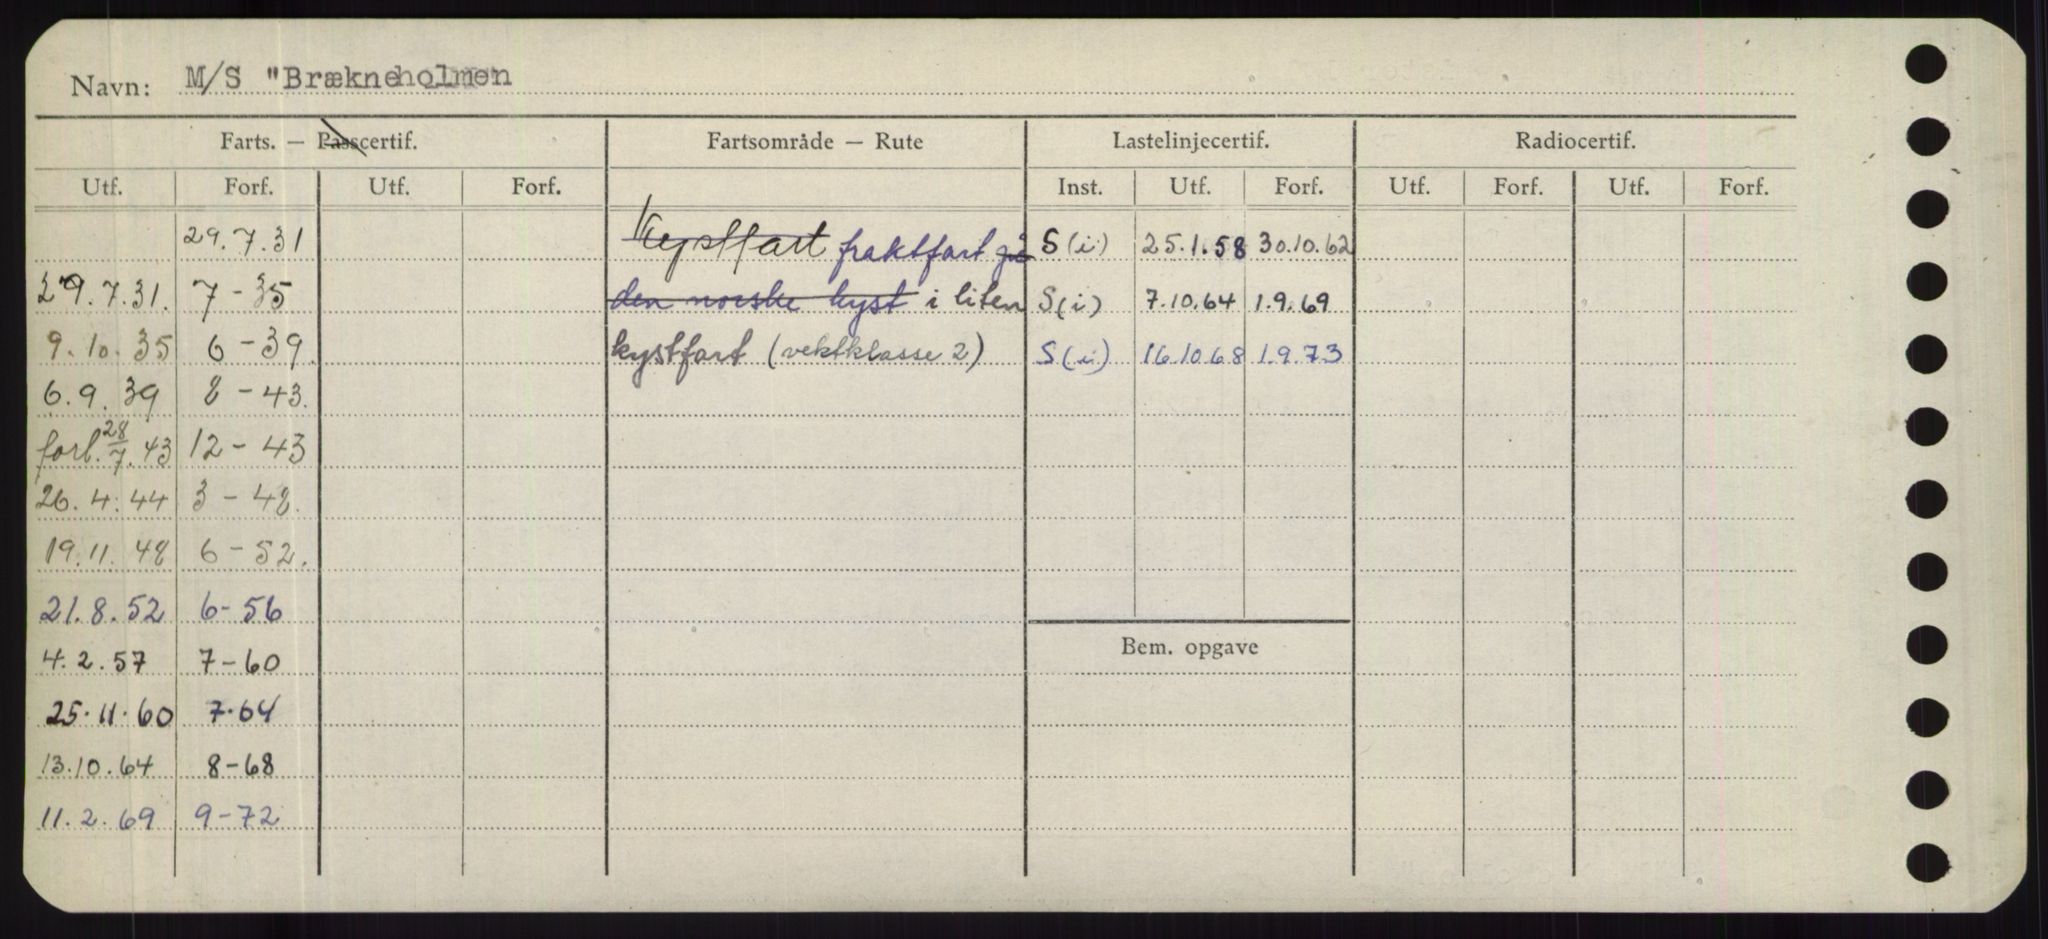 Navn: M/S "Brækneholmen
Farts. — Passcertif. Fartsområde — Rute Lastelinjecertif. Radiocertif.
Utf. Forf. Utf. Forf. Inst. Utf. Forf. Utf. Forf. Utf. Forf.
29.7.31 Kystfart fraktfart på S (i) 25.1.58 30.10.62
29.7.31. 7-35 den norske kyst i liten S(i) 7.10.64 1.9.69
9.10.35 6-39. kystfart (vektklasse 2) S(i) 16.10.68 1.9.73
6.9.39 8-43.
forl. 28/7.43 12-43
26.4.44 3-48.
19.11.48 6-52.
21.8.52 6-56
4.2.57 7-60 Bem. opgave
25.11.60 7.64
13.10.64 8-68
11.2.69 9-72